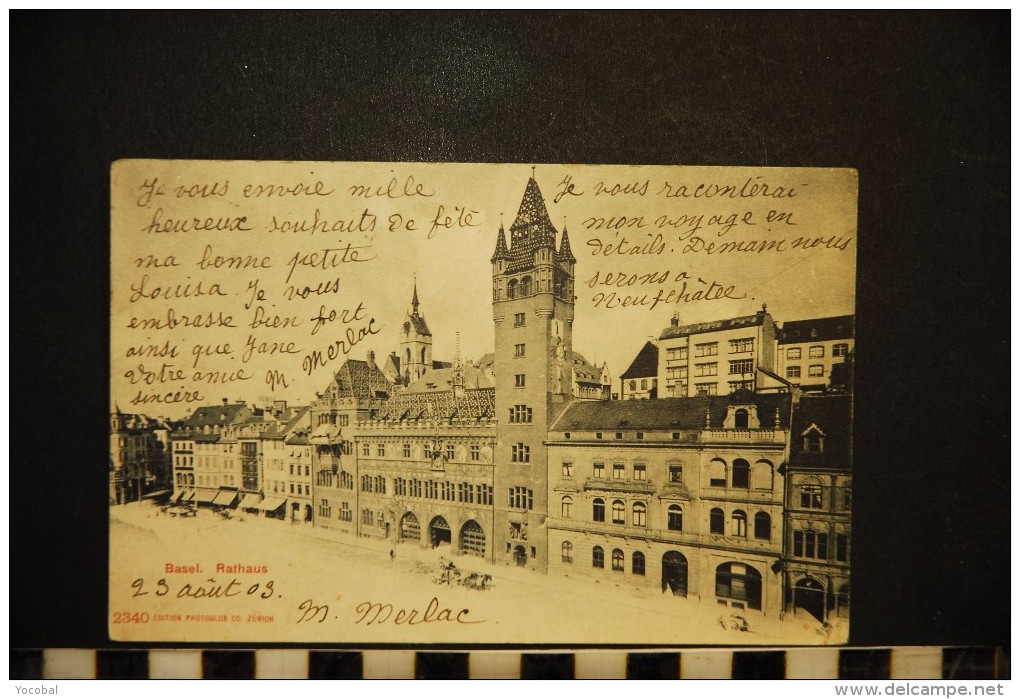 Je vous envoie mille
heureux souhaits de fête
ma bonne petite
Louisa. Je vous
embrasse bien fort
ainsi que Jane
Votre amie
sincère
M. Merlac
Je vous racontérai
mon voyage en
détails. Demain nous
serons à
Neufchatée
Basel. Rathaus
23 août 03.
M. Merlac
2340 EDITION PHOTOGLOB CO. ZÜRICH
Yocobal
www.delcampe.net